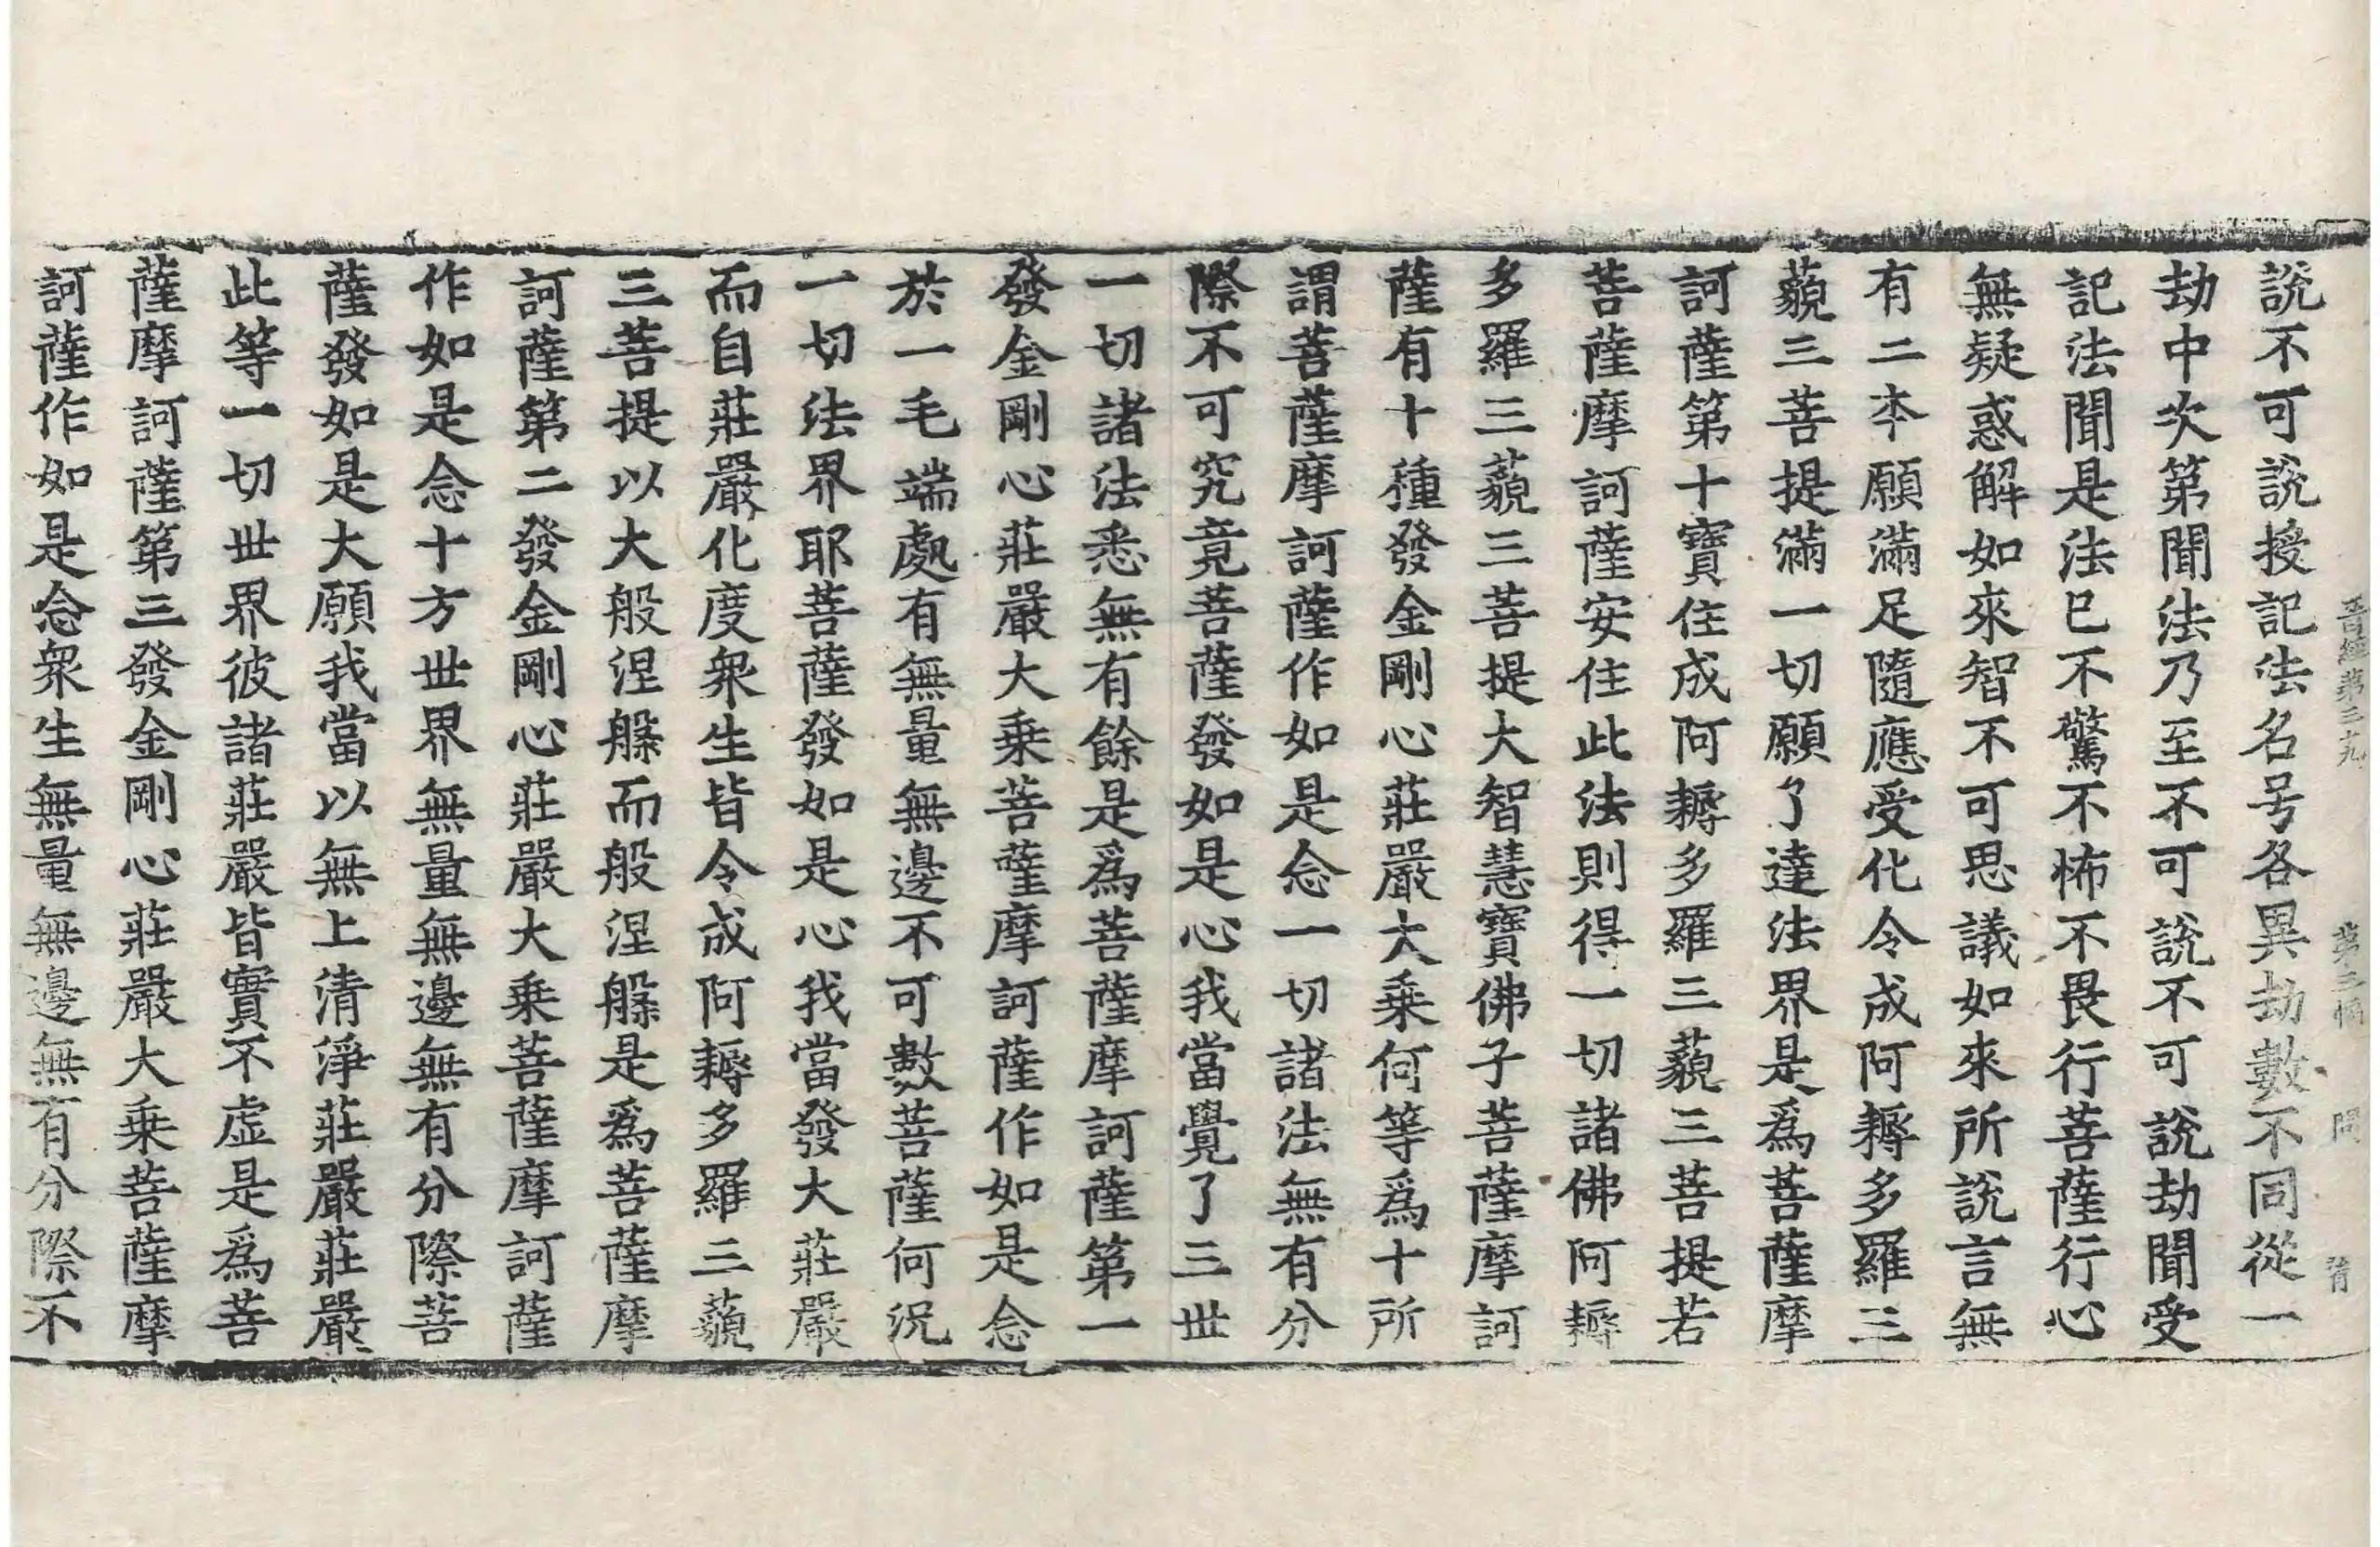 晉經第三十九 第三幅 同 肎
說不可說授記法名号各異劫數不同從一
劫中次第聞法乃至不可說不可說劫聞受
記法聞是法已不驚不怖不畏行菩薩行心
無疑惑解如來智不可思議如來所說言無
有二夲願滿足隨應受化令成阿耨多羅三
藐三菩提滿一切願了達法界是爲菩薩摩
訶薩第十寶住成阿耨多羅三藐三菩提若
菩薩摩訶薩安住此法則得一切諸佛阿耨
多羅三藐三菩提大智慧寶佛子菩薩摩訶
薩有十種發金剛心莊嚴大乗何等爲十所
謂菩薩摩訶薩作如是念一切諸法無有分
際不可究竟菩薩發如是心我當覺了三世
一切諸法悉無有餘是爲菩薩摩訶薩第一
發金剛心莊嚴大乗菩薩摩訶薩作如是念
於一毛端處有無量無邊不可數菩薩何況
一切法界耶菩薩發如是心我當發大莊嚴
而自莊嚴化度衆生皆令成阿耨多羅三藐
三菩提以大般涅槃而般涅槃是爲菩薩摩
訶薩第二發金剛心莊嚴大乗菩薩摩訶薩
作如是念十方世界無量無邊無有分際菩
薩發如是大願我當以無上清淨莊嚴莊嚴
此等一切世界彼諸莊嚴皆實不虚是爲菩
薩摩訶薩第三發金剛心莊嚴大乗菩薩摩
訶薩作如是念衆生無量無邊無有分際不